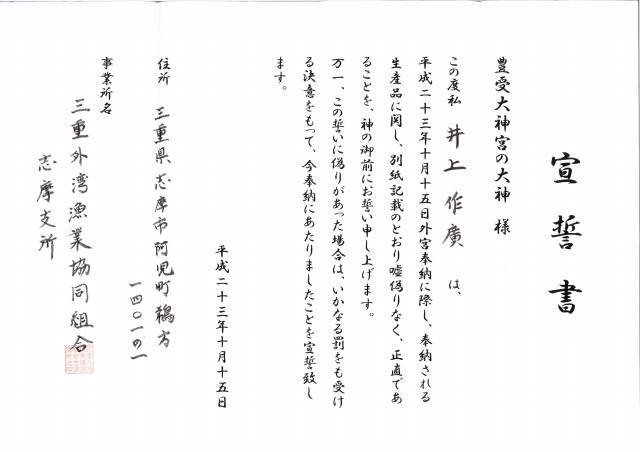 宣誓書
豊受大神宮の大神 様
この度私 井上 作廣 は、
平成二十三年十月十五日外宮奉納に際し、奉納される
生産品に関し、別紙記載のとおり嘘偽りなく、正直であ
ることを、神の御前にお誓い申し上げます。
万一、この誓いに偽りがあった場合は、いかなる罰をも受け
る決意をもって、今奉納にあたりましたことを宣誓致し
ます。
平成二十三年十月十五日
住所 三重県志摩市阿児町鵜方
一四〇一の一
事業所名
三重外湾漁業協同組合
志摩支所